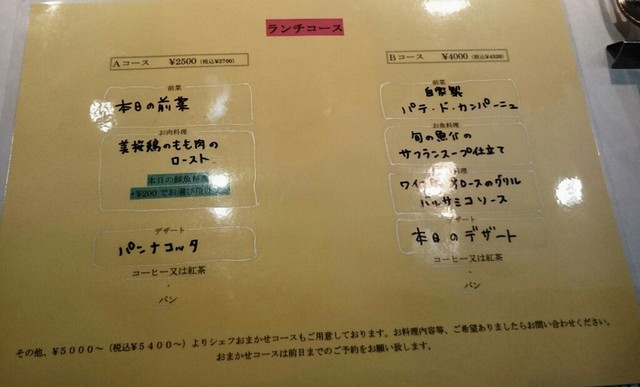 ランチコース
Aコース ¥2500(税込¥2700)
前菜
本日の前菜
お肉料理
美桜鶏のもも肉の
ロースト
本日の鮮魚料理
+¥200でお選び頂け
デザート
パンナコッタ
コーヒー又は紅茶
・
パン
Bコース ¥4000(税込¥4320)
前菜
自家製
パテ・ド・カンパーニュ
お魚料理
旬の魚介の
サフランスープ仕立て
料理
ロースのグリル
バルサミコソース
デザート
本日のデザート
コーヒー又は紅茶
・
パン
その他、¥5000〜(税込¥5400〜)よりシェフおまかせコースもご用意しております。お料理内容等、ご希望ありましたらお問い合わせください。
おまかせコースは前日までのご予約をお願い致します。